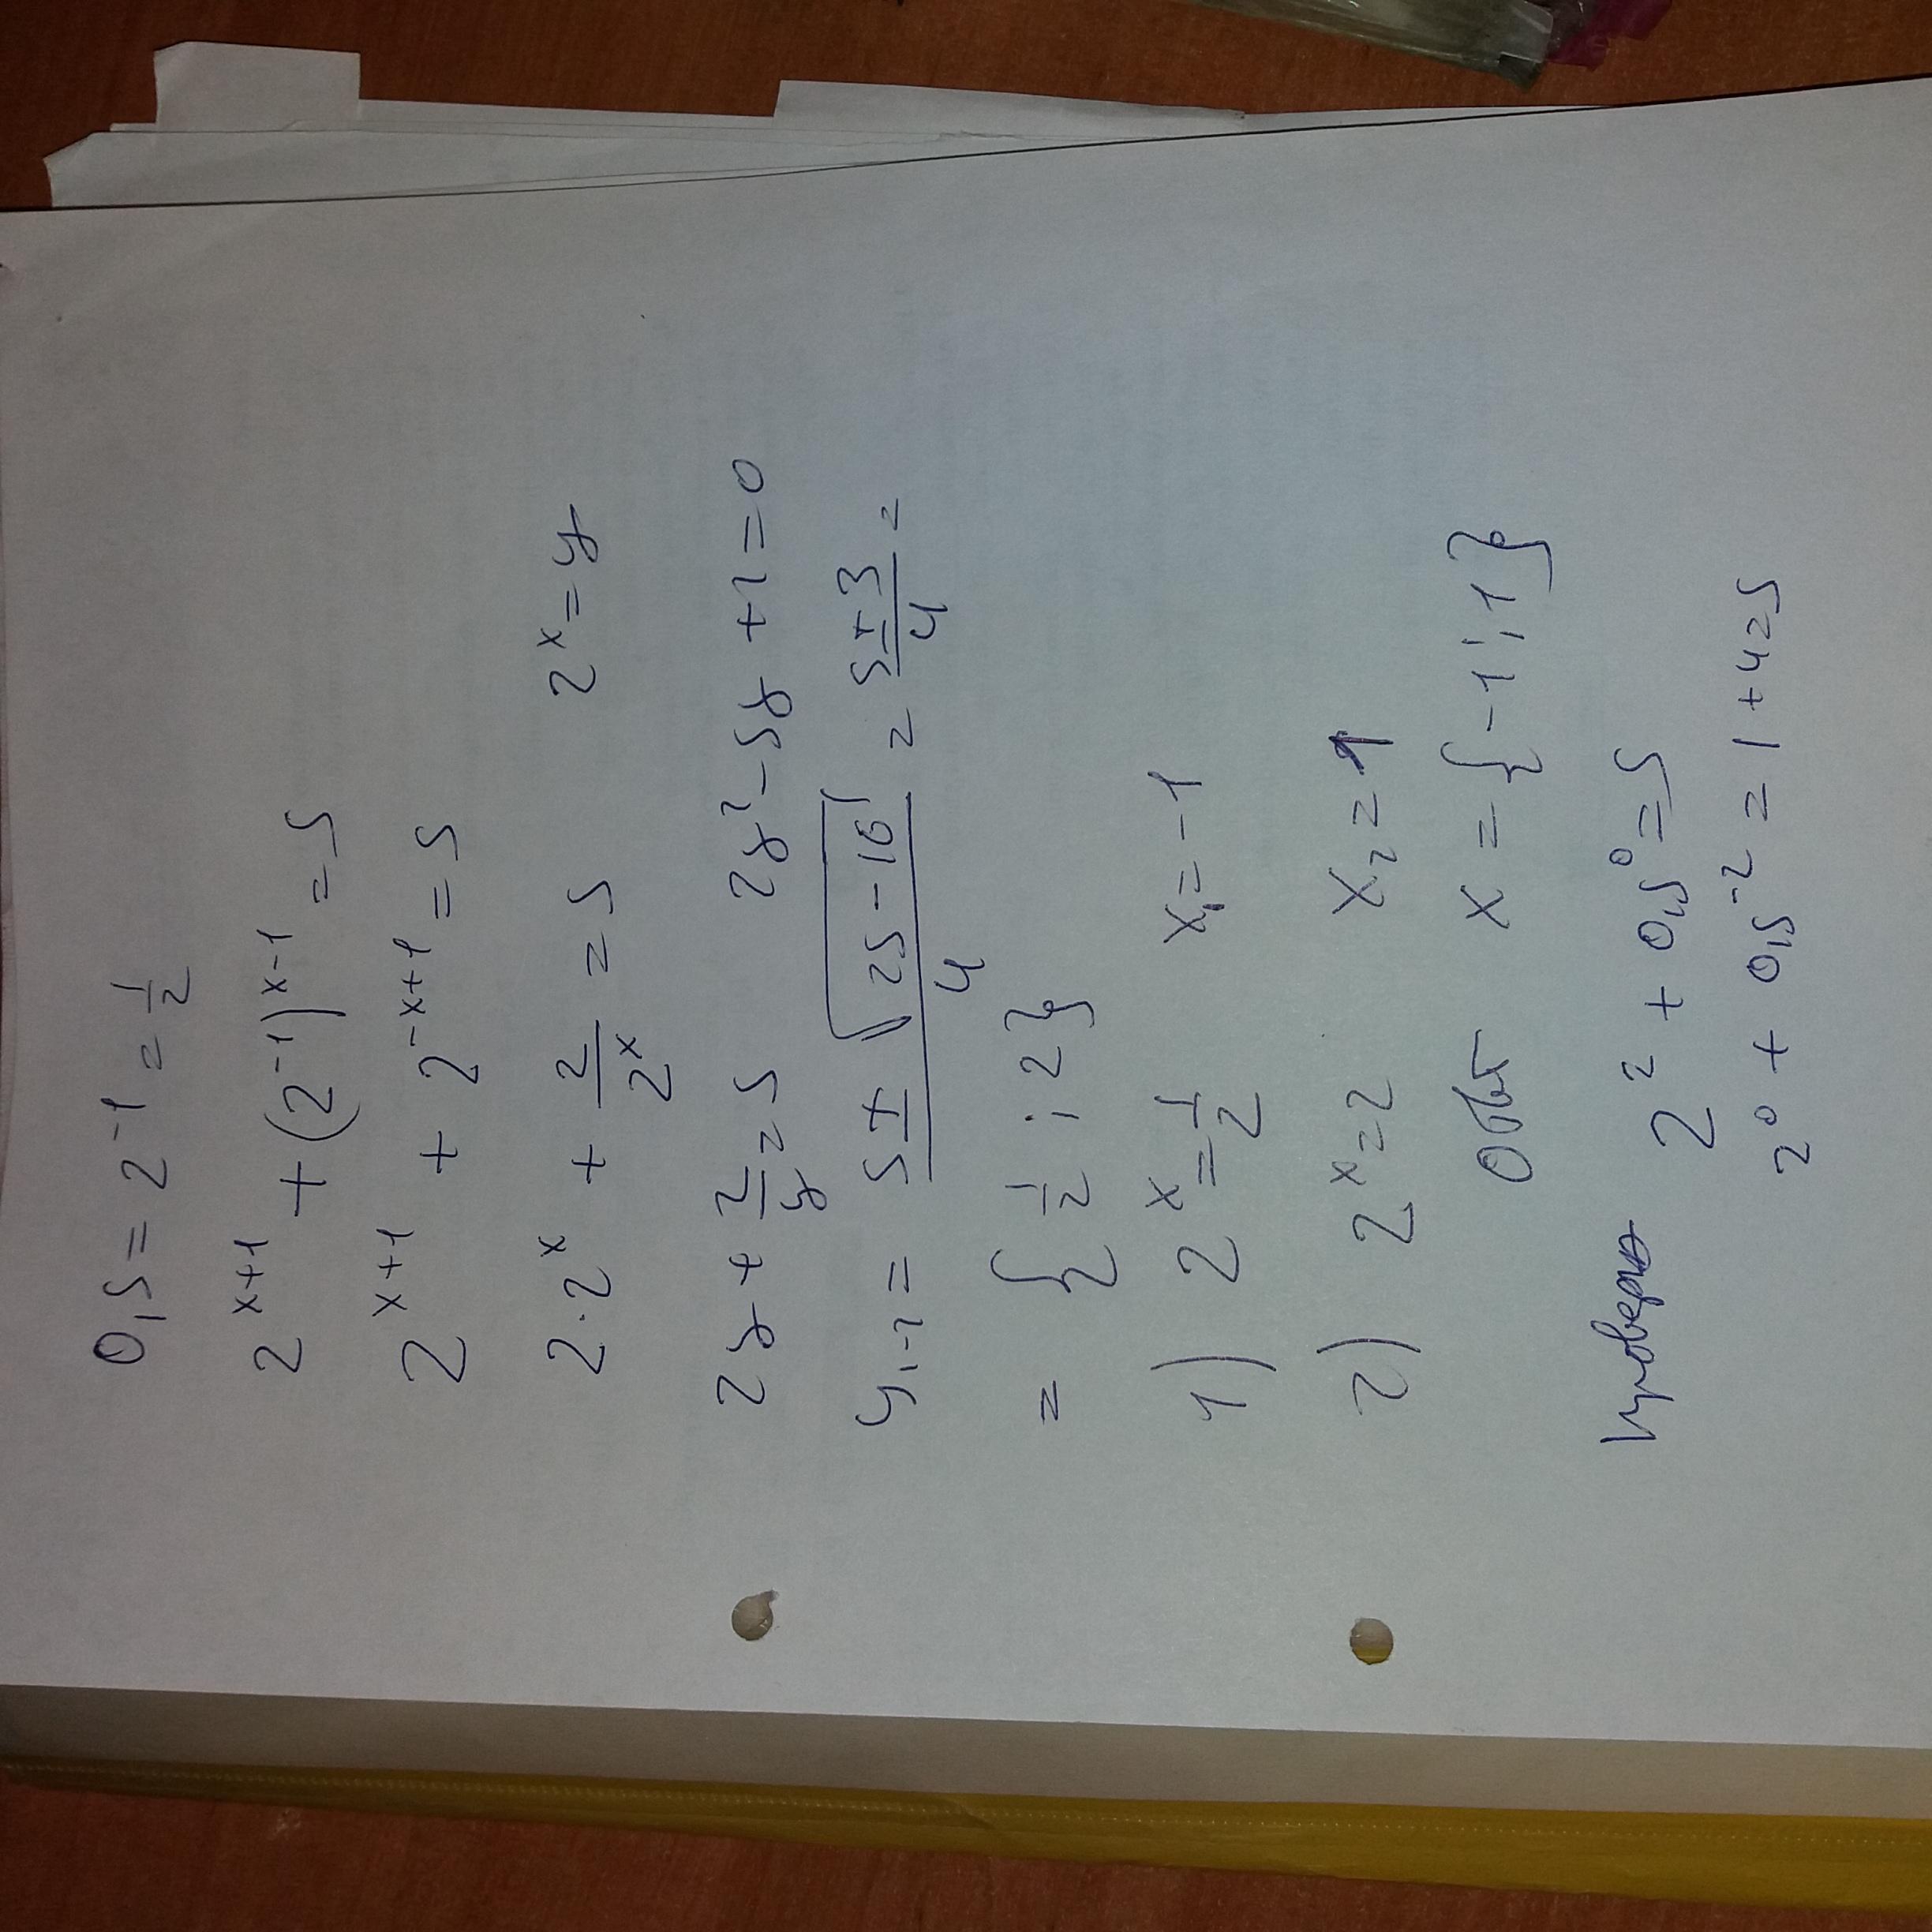 0,5 = 2⁻¹ = 1/2
2ˣ⁺¹ + (2⁻¹)ˣ⁻¹ = 5
2ˣ⁺¹ + 2⁻ˣ⁺¹ = 5
2·2ˣ + 2/2ˣ = 5 2ˣ = y
2y + 2/y = 5 2y² - 5y + 2 = 0
y₁₋₂ = (5 ± √(25 - 16))/4 = (5 ± 3)/4 =
= {1/2 ; 2}
1) 2ˣ = 1/2 x₁ = -1
2) 2ˣ = 2 x₂ = 1
Ответ x = {-1; 1}
проверка 2² + 0,5⁰ = 5
2⁰ + 0,5⁻² = 1 + 4 = 5